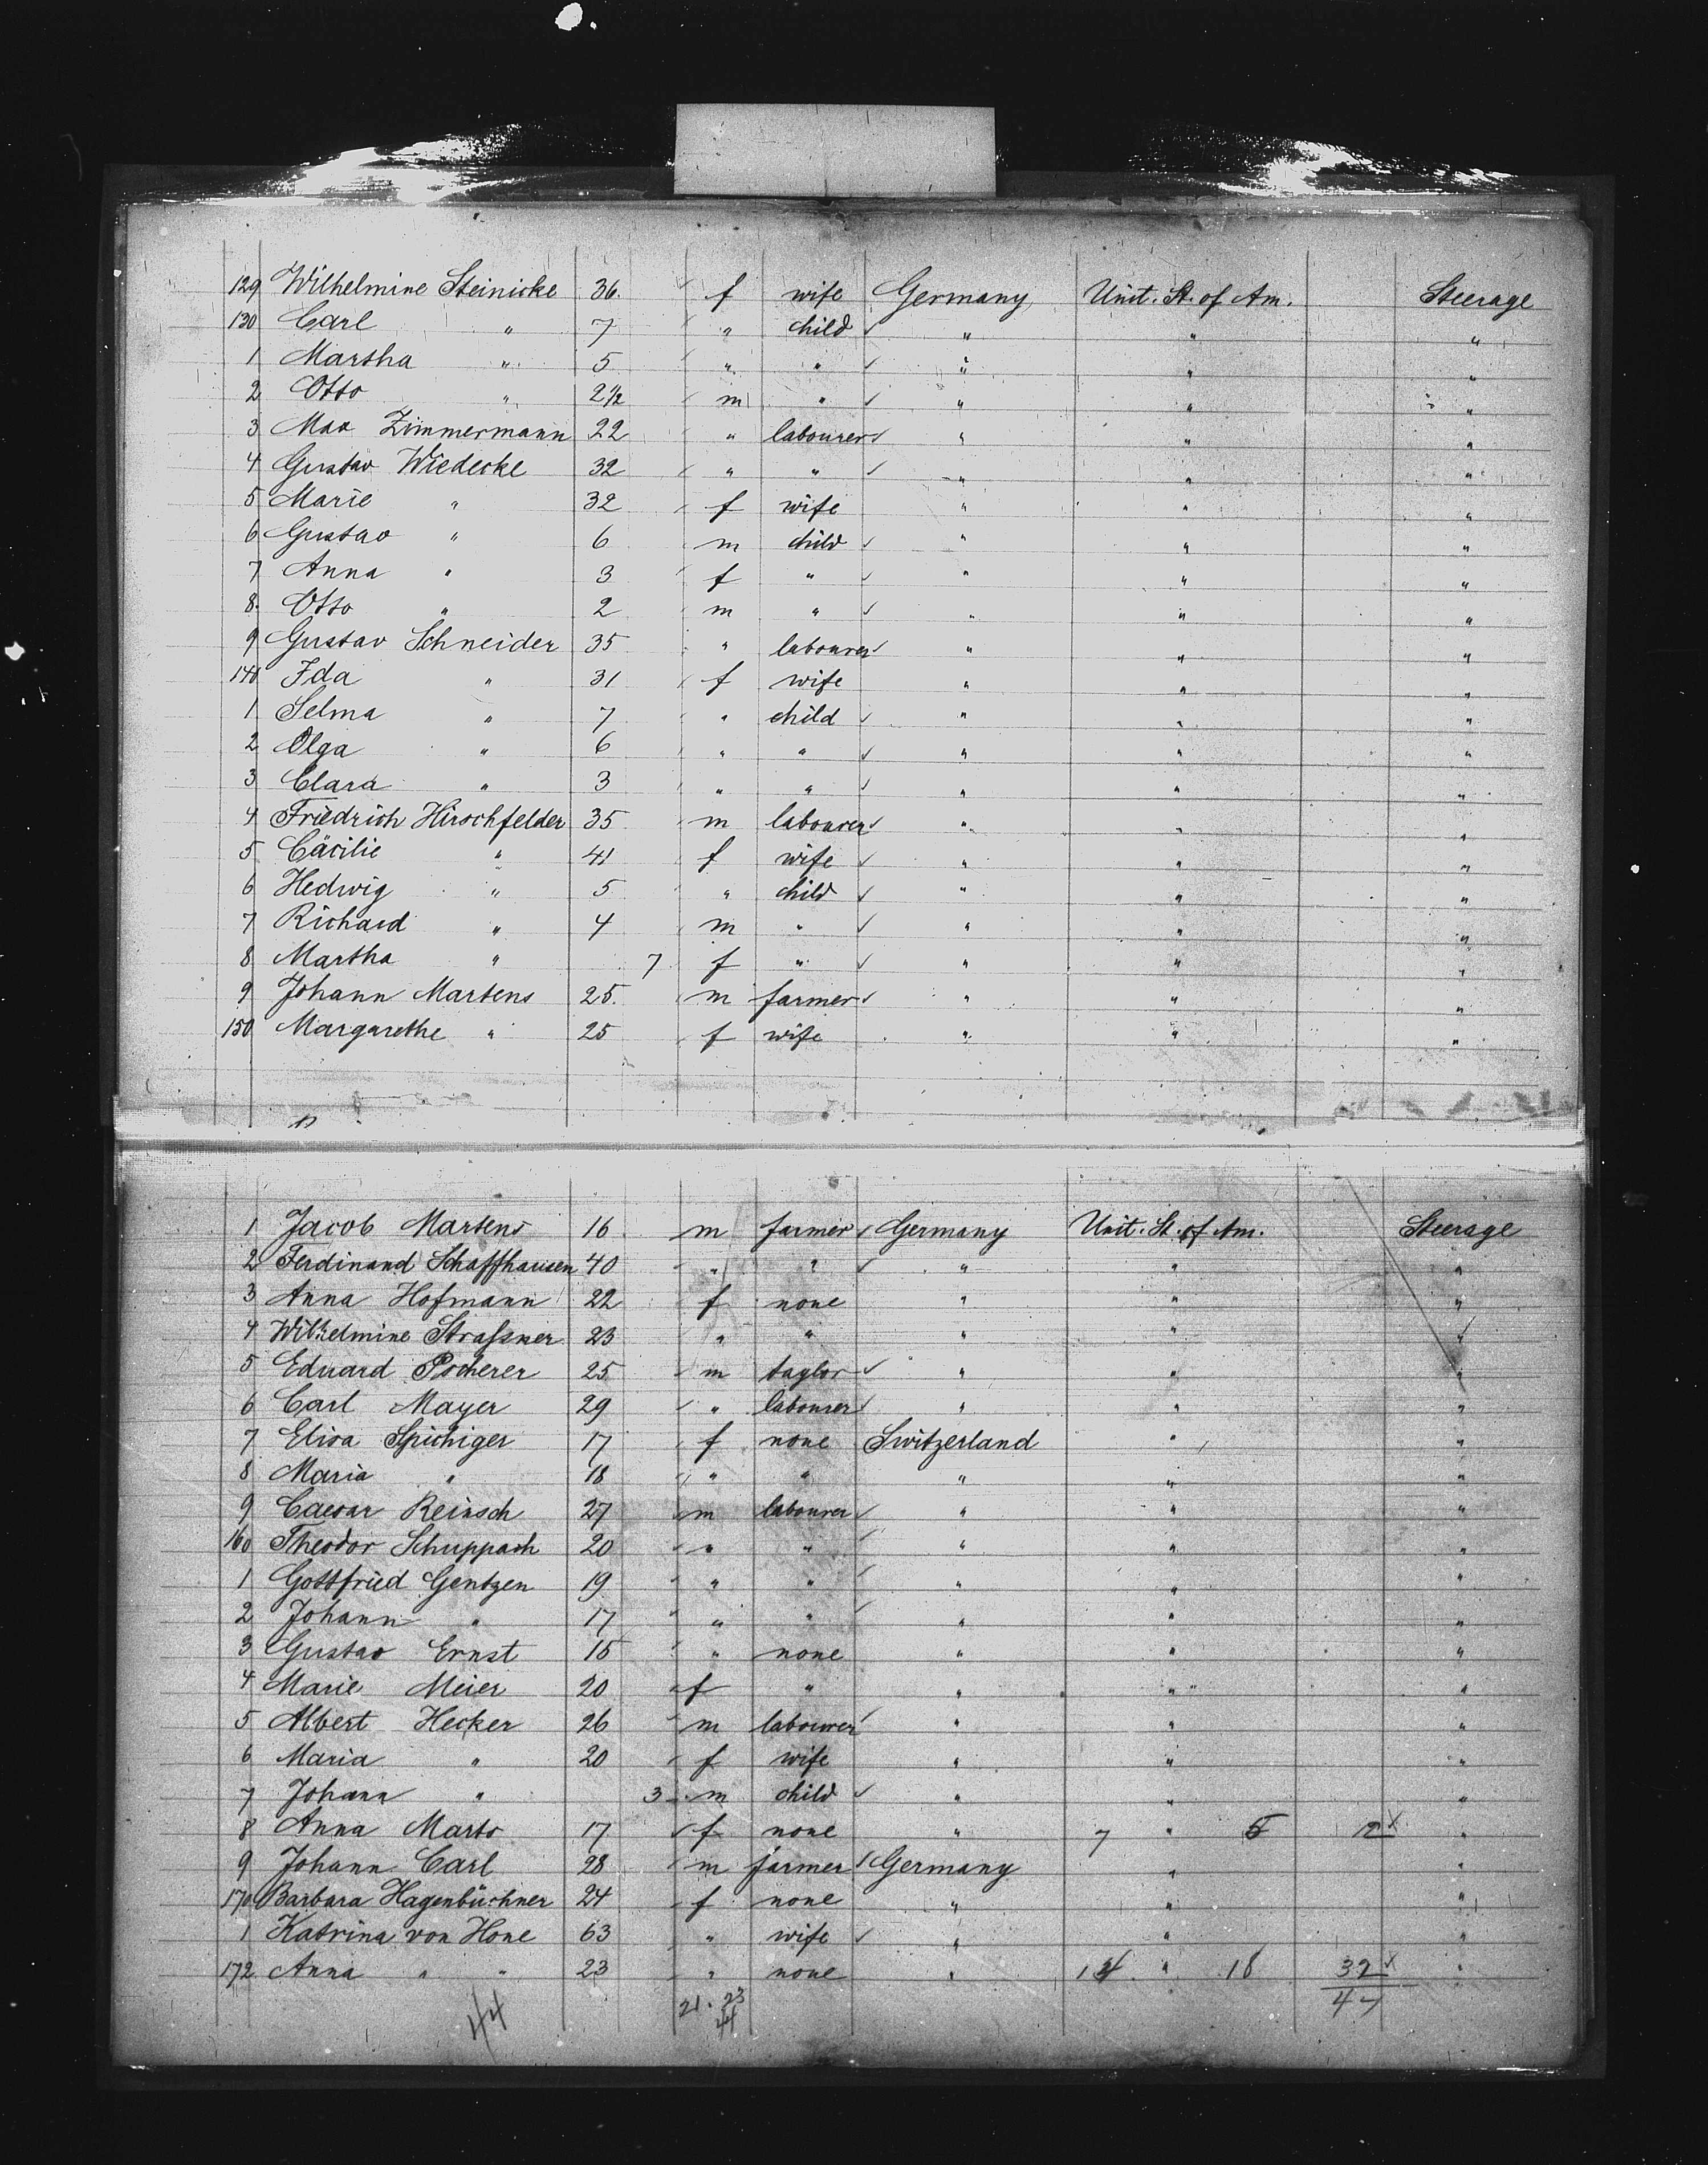 129 Wilhelmine Steinicke 36. f wife Germany Unit. St. of Am. Steerage
130 Carl " 7 " child " " "
1 Martha " 5 " " " " "
2 Otto " 2½ m " " " "
3 Max Zimmermann 22 " labourer " " "
4 Gustav Wiedecke 32 " " " " "
5 Marie " 32 f wife " " "
6 Gustav " 6 m child " " "
7 Anna " 3 f " " " "
8. Otto " 2 m " " " "
9 Gustav Schneider 35 " labourer " " "
140 Ida " 31 f wife " " "
1 Selma " 7 " child " " "
2 Olga " 6 " " " " "
3 Clara " 3 " " " " "
4 Friedrich Hirschfelder 35 m labourer " " "
5 Cäcilie " 41 f wife " " "
6 Hedwig " 5 " child " " "
7 Richard " 4 m " " " "
8 Martha " 7 f " " " "
9 Johann Martens 25. m farmer " " "
150 Margarethe " 25 f wife " " "
1 Jacob Martens 16 m farmer Germany Unit. St. of Am. Steerage
2 Ferdinand Schaffhausen 40 " " " " "
3 Anna Hofmann 22 f none " " "
4 Wilhelmine Straßner 23 " " " " "
5 Eduard Pscherer 25 m taylor " " "
6 Carl Mayer 29 " labourer " " "
7 Elisa Spichiger 17 f none Switzerland " "
8 Maria " 18 " " " " "
9 Caesar Reinsch 27 m labourer " " "
160 Theodor Schuppach 20 " " " " "
1 Gottfried Gentzen 19 " " " " "
2 Johann " 17 " " " " "
3 Gustav Ernst 15 " none " " "
4 Marie Meier 20 f " " " "
5 Albert Hecker 26 m labourer " " "
6 Maria " 20 f wife " " "
7 Johann " 3 m child " " "
8 Anna Marts 17 f none " 7 " "
9 Johann Carl 28 m farmer Germany " "
170 Barbara Hagenbüchner 24 f none " " "
1 Katrina von Hone 63 " wife " " "
172 Anna " " 23 " none " 14 " 18 32 "
44 21. 23 47
44